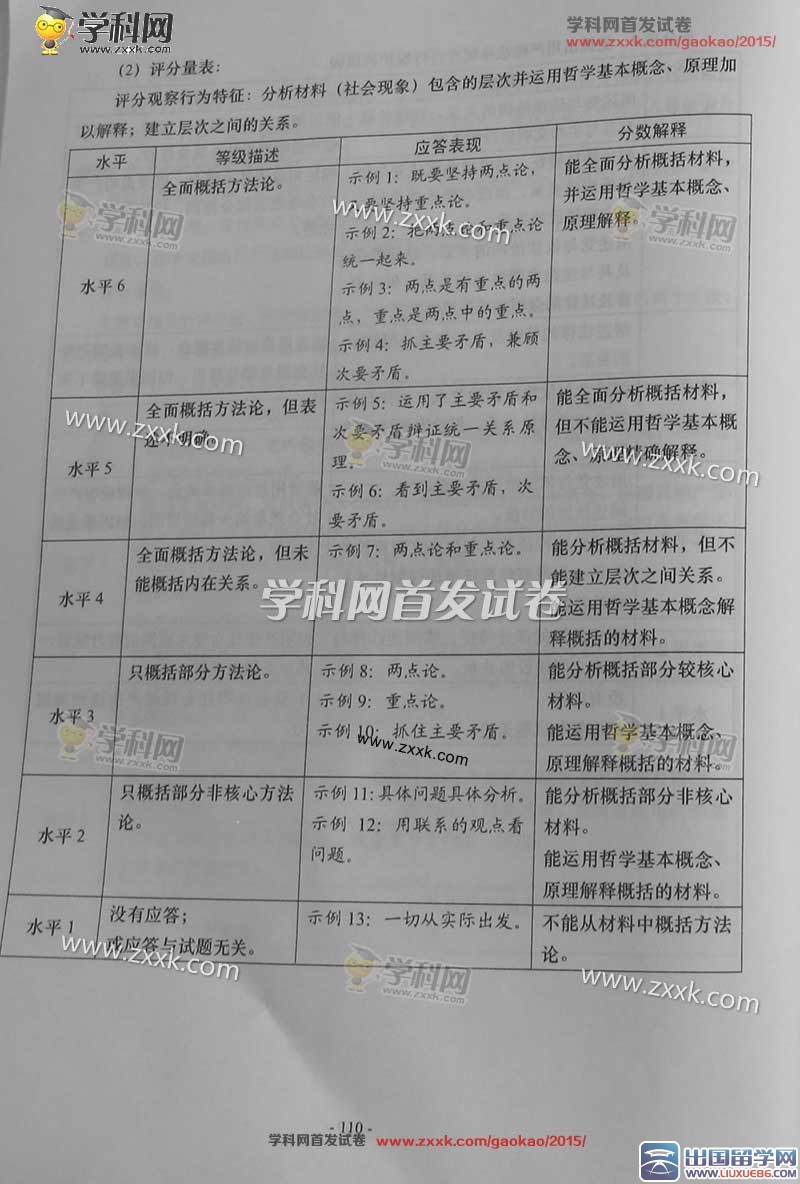 学科网
www.zxxk.com
学科网首发试卷
www.zxxk.com/gaokao/2015/
(2) 评分量表:
评分观察行为特征: 分析材料 (社会现象) 包含的层次并运用哲学基本概念、原理加
以解释; 建立层次之间的关系。
水平
等级描述
应答表现
分数解释
水平 6
全面概括方法论。
示例 1: 既要坚持两点论,
要坚持重点论。
示例 2: 把两点论和重点论
统一起来。
示例 3: 两点是有重点的两
点, 重点是两点中的重点。
示例 4: 抓主要矛盾, 兼顾
次要矛盾。
能全面分析概括材料,
并运用哲学基本概念、
原理解释。
水平 5
全面概括方法论, 但表
述不明确。
示例 5: 运用了主要矛盾和
次要矛盾辩证统一关系原
理。
示例 6: 看到主要矛盾, 次
要矛盾。
能全面分析概括材料,
但不能运用哲学基本概
念、原理精确解释。
水平 4
全面概括方法论, 但未
能概括内在关系。
示例 7: 两点论和重点论。
能分析概括材料, 但不
能建立层次之间关系。
能运用哲学基本概念解
释概括的材料。
水平 3
只概括部分方法论。
示例 8: 两点论。
示例 9: 重点论。
示例 10: 抓住主要矛盾。
能分析概括部分较核心
材料。
能运用哲学基本概念、
原理解释概括的材料。
水平 2
只概括部分非核心方法
论。
示例 11: 具体问题具体分析。
示例 12: 用联系的观点看
问题。
能分析概括部分非核心
材料。
能运用哲学基本概念、
原理解释概括的材料。
水平 1
没有应答;
或应答与试题无关。
示例 13: 一切从实际出发。
不能从材料中概括方法
论。
学科网
www.zxxk.com
学科网
www.zxxk.com
www.zxxk.com
www.zxxk.com
学科网
www.zxxk.com
www.zxxk.com
学科网首发试卷
学科网
www.zxxk.com
学科网
www.zxxk.com
www.zxxk.com
www.zxxk.com
学科网
www.zxxk.com
www.zxxk.com
- 110 -
学科网首发试卷
www.zxxk.com/gaokao/2015/
出国留学网
www.liuxue86.com